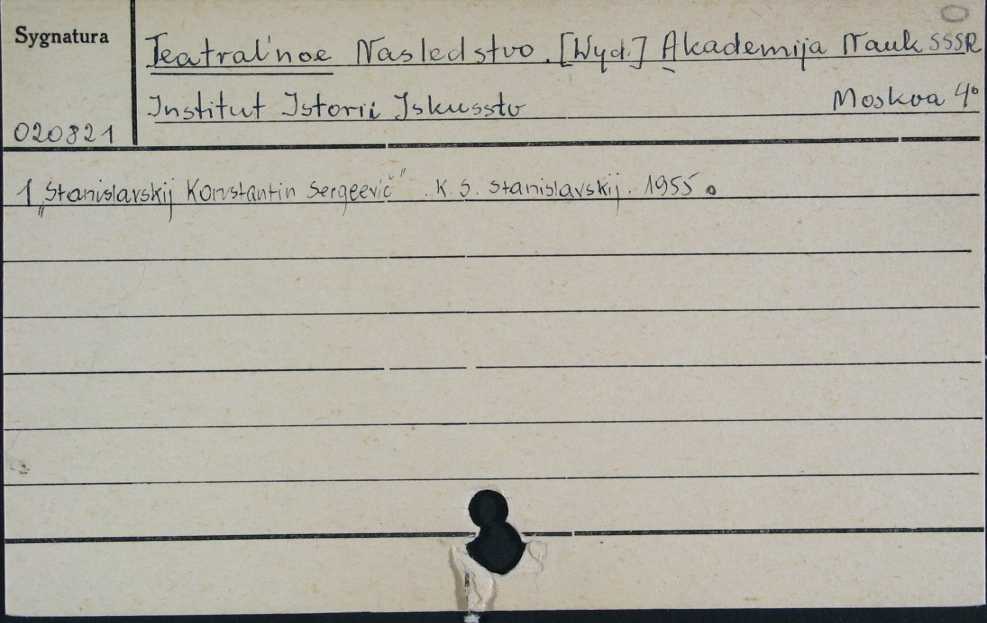 Sygnatura
Teatral'noe Nasledstvo. [Wyd.] Akademija Nauk SSSR
Institut Istorii Iskusstv Moskva 4°
020821
1 „Stanislavskij Konstantin Sergeevič" . K. S. Stanislavskij. 1955.